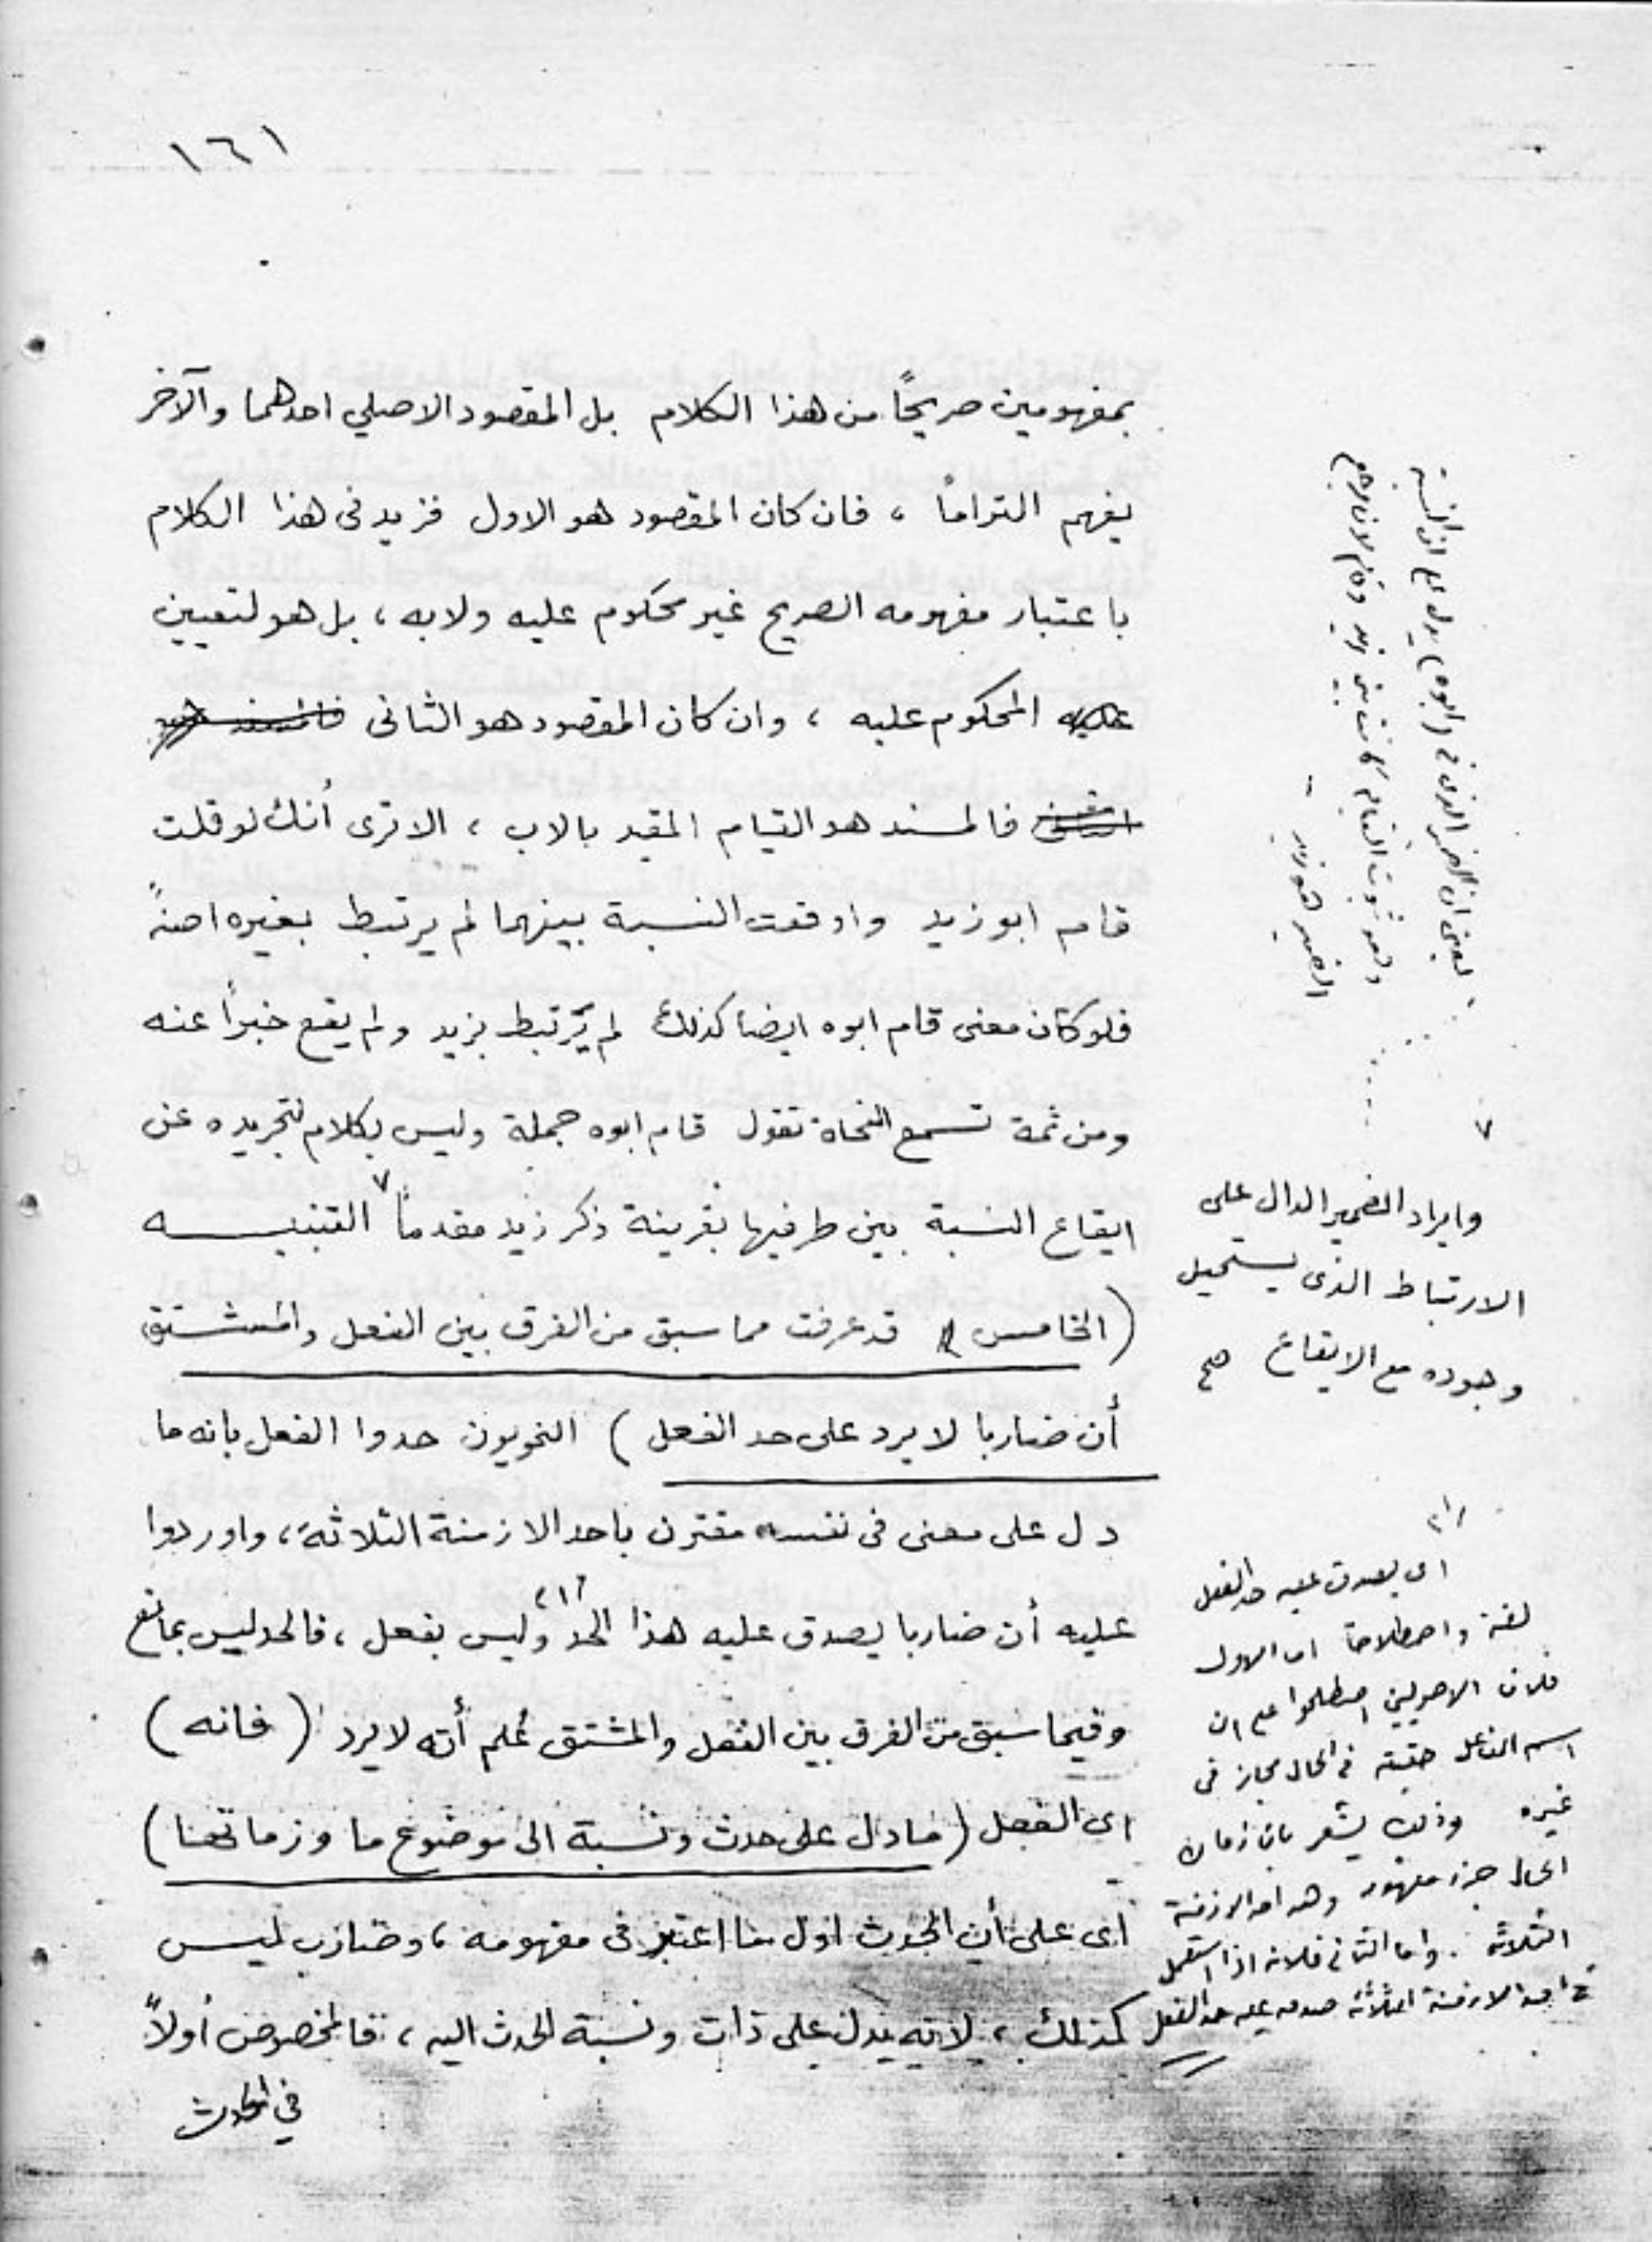 ١٦١
بمفهومين صريحًا من هذا الكلام بل المقصود الاصلي احدهما والآخر
يفهم التزامًا ، فان كان المقصود هو الاول فزيد فى هذا الكلام
باعتبار مفهومه الصريح غير محكوم عليه ولابه ، بل هو لتعيين
المحكوم عليه ، وان كان المقصود هو الثانى
فالمسند هو القيام المقيد بالاب ، الا ترى أنك لو قلت
قام ابو زيد واوقعت النسبة بينهما لم يرتبط بغيره اصلاً
فلو كان معنى قام ابوه ايضا كذلك لم يرتبط بزيد ولم يقع خبرًا عنه
ومن ثمة تسمع النحاة تقول قام ابوه جملة وليس بكلام لتجريده عن
ايقاع النسبة بين طرفيها بقرينة ذكر زيد مقدماً ٧ التنبيه
(الخامس قد عرفت مما سبق من الفرق بين الفعل والمشتق
أن ضاربا لا يرد على حد الفعل) النحويون حدوا الفعل بانه ما
دل على معنى فى نفسه مقترن باحد الازمنة الثلاثة ، واوردوا
عليه أن ضاربا يصدق عليه هذا الحد وليس بفعل ، فالحد ليس بمانع
وفيما سبق من الفرق بين الفعل والمشتق عُلم أنه لا يرد (فانه)
اى الفعل (ما دل على حدث ونسبة الى موضوع ما وزمانها)
اى على أن الحدث اول ما اعتبر فى مفهومه ، وضارب ليس
كذلك ، لانه يدل على ذات ونسبة الحدث اليه ، فالمخصوص أولاً
في الحدث
يعنى ان الضمير الذى فى (ابوه) يدل على ان النسبة
وهو ثبوت القيام كانت بين زيد وقام لان مرجع
الضمير هو زيد
٧
وايراد الضمير الدال على
الارتباط الذى يستحيل
وجوده مع الايقاع صح
اى يصدق عليه حد الفعل
لغة واصطلاحا اما الاول
فلان الاصوليين اصطلحوا على ان
اسم الفاعل حقيقة فى الحال مجاز فى
غيره وذلك يشعر بان زمان
الحال جزء مفهومه وهو احد الازمنة
الثلاثة . واما الثانى فلانه اذا استعمل
فى احد الازمنة الثلاثة صدق عليه حد الفعل